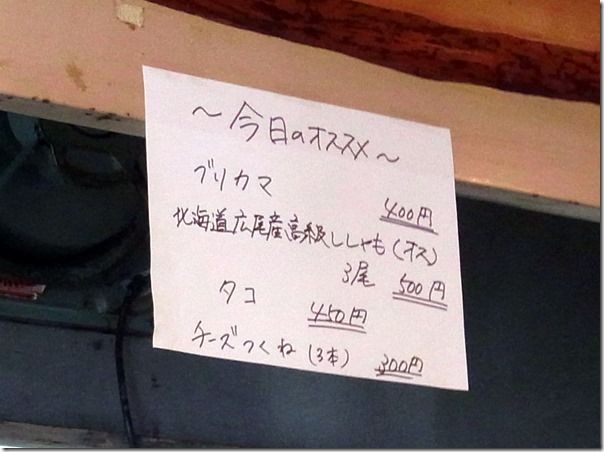 ～今日のオススメ～
ブリカマ
400円
北海道広尾産高級ししゃも(オス)
3尾 500円
タコ
450円
チーズつくね(3本) 300円